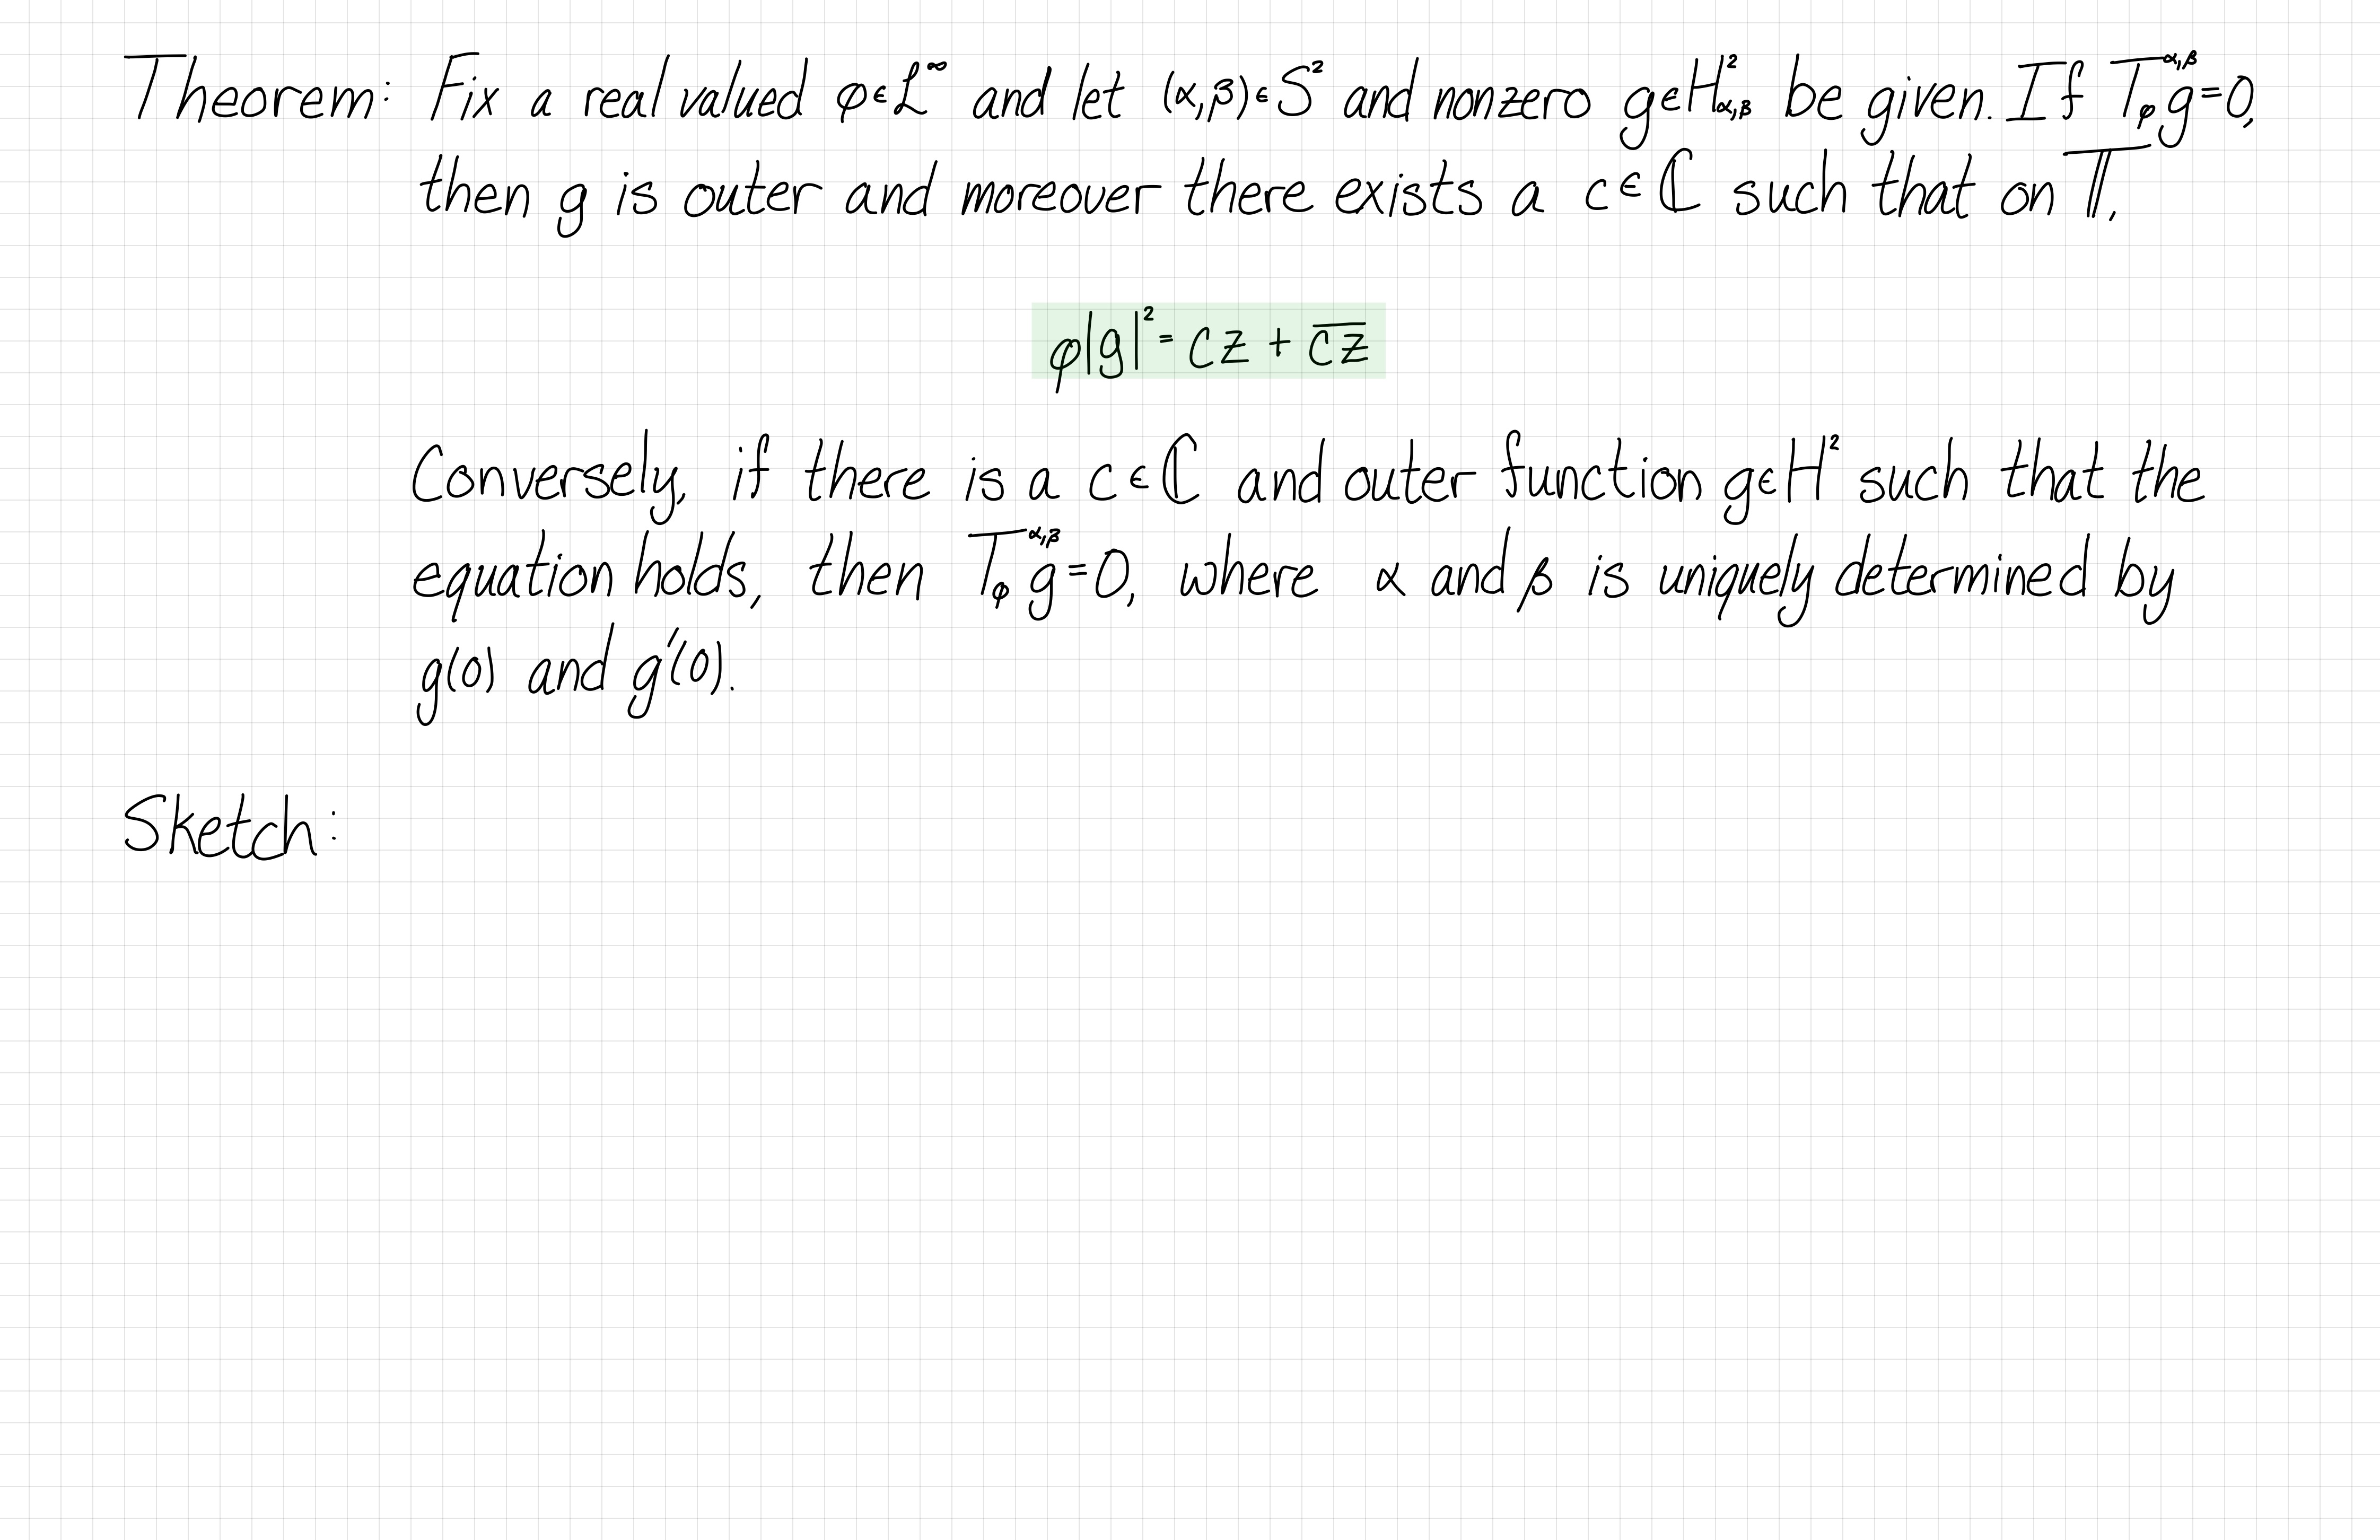 Theorem: Fix a real valued φ∈L^∞ and let (α,β)∈S² and nonzero g∈H²_{α,β} be given. If T_φ^{α,β} g=0,
then g is outer and moreover there exists a c∈ℂ such that on 𝕋,
φ|g|² = cz + \overline{cz}
Conversely, if there is a c∈ℂ and outer function g∈H² such that the
equation holds, then T_φ^{α,β} g=0, where α and β is uniquely determined by
g(0) and g′(0).
Sketch: